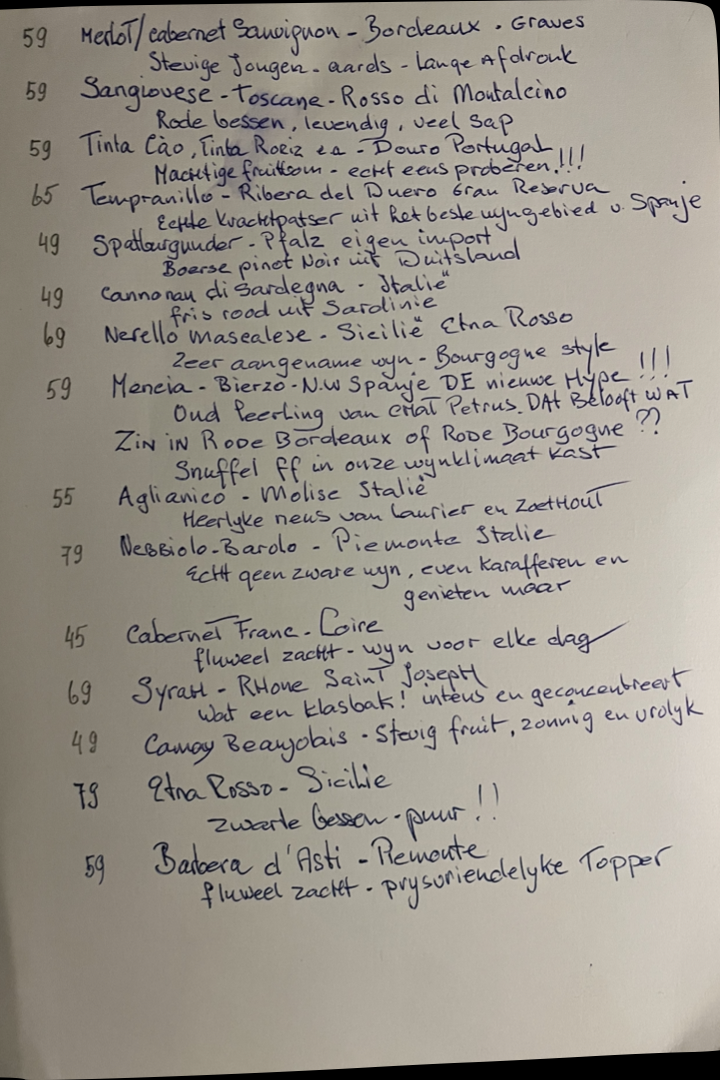 59 Merlot/cabernet Sauvignon - Bordeaux . Graves
Stevige Jongen - aards - Lange Afdronk
59 Sangiovese - Toscane - Rosso di Montalcino
Rode bessen, levendig, veel sap
59 Tinta Cào, Tinta Roriz ea - Douro Portugal
Machtige fruitbom - echt eens proberen!!!
65 Tempranillo - Ribera del Duero Gran Reserva
Echte krachtpatser uit het beste wyngebied v. Spanje
49 Spatburgunder - Pfalz eigen import
Boerse pinot Noir uit Duitsland
49 Cannonau di Sardegna - Italië
fris rood uit Sardinie
69 Nerello masealese - Sicilië Etna Rosso
Zeer aangename wyn - Bourgogne style
59 Mencia - Bierzo - N.W Spanje DE nieuwe Hype !!!
Oud leerling van chat Petrus. DAt Belooft WAT
ZIN IN RODE Bordeaux of Rode Bourgogne ??
Snuffel ff in onze wynklimaat kast
55 Aglianico - Molise Italië
Heerlyke neus van laurier en ZoetHout
79 Nebbiolo - Barolo - Piemonte Italie
Echt geen zware wyn, even karafferen en
genieten maar
45 Cabernet Franc - Loire
fluweel zacht - wyn voor elke dag
69 Syrah - RHone Saint Joseph
Wat een klasbak! intens en geconcentreert
49 Gamay Beaujolais - Stevig fruit, zonnig en vrolyk
79 Etna Rosso - Sicilie
zwarte bessen - puur !!
59 Barbera d'Asti - Piemonte
fluweel zacht - prysvriendelyke Topper